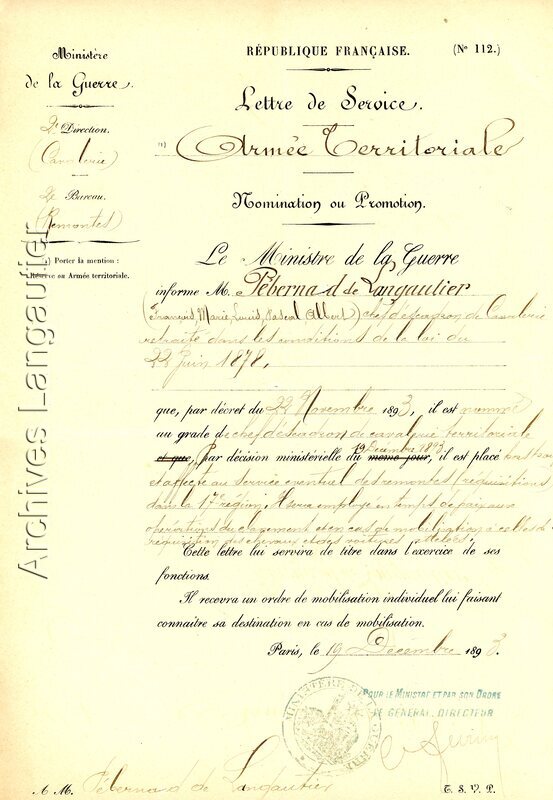 Ministère
de la Guerre.
2e Direction.
(Cavalerie)
2e Bureau.
(Remontes)
(1) Porter la mention :
Réserve ou Armée territoriale.
RÉPUBLIQUE FRANÇAISE.
(No 112.)
Lettre de Service.
(1) Armée Territoriale
Nomination ou Promotion.
Le Ministre de la Guerre
informe M. Péberna d de Langautier
(François, Marie, Louis, Pascal Albert) chef d'escadron de Cavalerie
retraité dans les conditions de la loi du
22 Juin 1878,
que, par décret du 22 Novembre 1893, il est nommé
au grade de chef d'escadron de cavalerie territoriale
19 Décembre 1893
et que, Par décision ministérielle du même jour, il est placé
et affecté au service éventuel des remontes (réquisitions)
dans la 17e région. Il sera employé en temps de paix aux
opérations du classement et en cas de mobilisation à celles de
réquisition des chevaux et des voitures attelées.
Cette lettre lui servira de titre dans l'exercice de ses
fonctions.
Il recevra un ordre de mobilisation individuel lui faisant
connaître sa destination en cas de mobilisation.
Paris, le 19 Décembre 1893.
MINISTÈRE DE LA GUERRE
POUR LE MINISTRE ET PAR SON ORDRE
LE GÉNÉRAL DIRECTEUR
A M. Pébernad de Langautier
T. S. V. P.
Archives Langautier